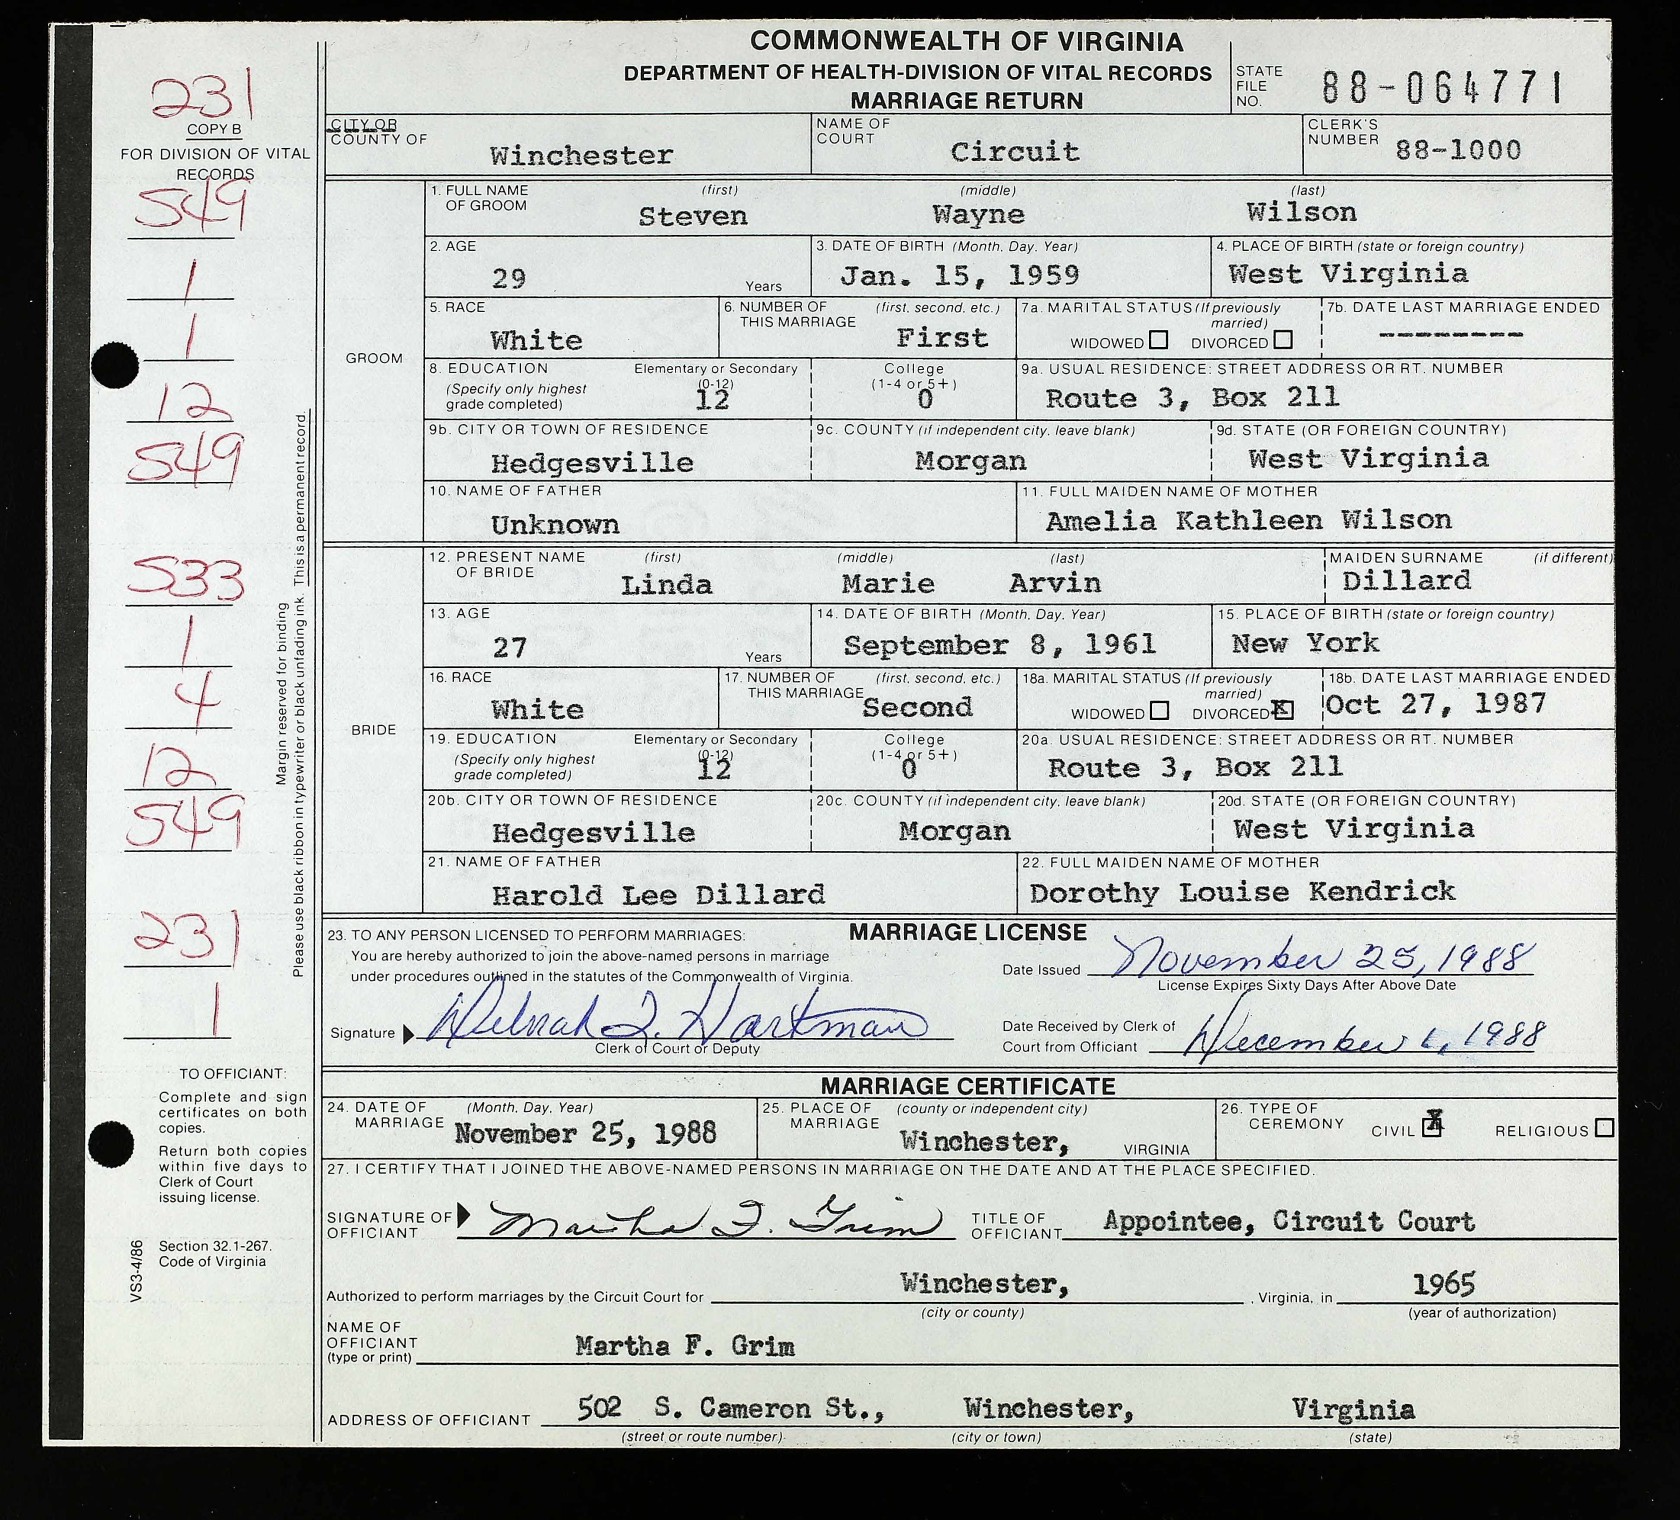 COMMONWEALTH OF VIRGINIA
DEPARTMENT OF HEALTH-DIVISION OF VITAL RECORDS
MARRIAGE RETURN
STATE FILE NO. 88-064771
231
COPY B
FOR DIVISION OF VITAL RECORDS
549
1
1
12
549
533
1
4
12
549
231
1
Margin reserved for binding
Please use black ribbon in typewriter or black unfading ink. This is a permanent record.
TO OFFICIANT:
Complete and sign
certificates on both
copies.
Return both copies
within five days to
Clerk of Court
issuing license.
Section 32.1-267.
Code of Virginia
VS3-4/86
CITY OR COUNTY OF Winchester
NAME OF COURT Circuit
CLERK'S NUMBER 88-1000
GROOM
1. FULL NAME OF GROOM (first) Steven (middle) Wayne (last) Wilson
2. AGE 29 Years
3. DATE OF BIRTH (Month, Day, Year) Jan. 15, 1959
4. PLACE OF BIRTH (state or foreign country) West Virginia
5. RACE White
6. NUMBER OF THIS MARRIAGE (first, second, etc.) First
7a. MARITAL STATUS (If previously married) WIDOWED DIVORCED
7b. DATE LAST MARRIAGE ENDED --------
8. EDUCATION (Specify only highest grade completed) Elementary or Secondary (0-12) 12 College (1-4 or 5+) 0
9a. USUAL RESIDENCE: STREET ADDRESS OR RT. NUMBER Route 3, Box 211
9b. CITY OR TOWN OF RESIDENCE Hedgesville
9c. COUNTY (if independent city, leave blank) Morgan
9d. STATE (OR FOREIGN COUNTRY) West Virginia
10. NAME OF FATHER Unknown
11. FULL MAIDEN NAME OF MOTHER Amelia Kathleen Wilson
BRIDE
12. PRESENT NAME OF BRIDE (first) Linda (middle) Marie (last) Arvin MAIDEN SURNAME (if different) Dillard
13. AGE 27 Years
14. DATE OF BIRTH (Month, Day, Year) September 8, 1961
15. PLACE OF BIRTH (state or foreign country) New York
16. RACE White
17. NUMBER OF THIS MARRIAGE (first, second, etc.) Second
18a. MARITAL STATUS (If previously married) WIDOWED DIVORCED X
18b. DATE LAST MARRIAGE ENDED Oct 27, 1987
19. EDUCATION (Specify only highest grade completed) Elementary or Secondary (0-12) 12 College (1-4 or 5+) 0
20a. USUAL RESIDENCE: STREET ADDRESS OR RT. NUMBER Route 3, Box 211
20b. CITY OR TOWN OF RESIDENCE Hedgesville
20c. COUNTY (if independent city, leave blank) Morgan
20d. STATE (OR FOREIGN COUNTRY) West Virginia
21. NAME OF FATHER Harold Lee Dillard
22. FULL MAIDEN NAME OF MOTHER Dorothy Louise Kendrick
MARRIAGE LICENSE
23. TO ANY PERSON LICENSED TO PERFORM MARRIAGES:
You are hereby authorized to join the above-named persons in marriage
under procedures outlined in the statutes of the Commonwealth of Virginia.
Date Issued November 25, 1988
License Expires Sixty Days After Above Date
Signature Hartman
Clerk of Court or Deputy
Date Received by Clerk of Court from Officiant December 1, 1988
MARRIAGE CERTIFICATE
24. DATE OF MARRIAGE (Month, Day, Year) November 25, 1988
25. PLACE OF MARRIAGE (county or independent city) Winchester, VIRGINIA
26. TYPE OF CEREMONY CIVIL X RELIGIOUS
27. I CERTIFY THAT I JOINED THE ABOVE-NAMED PERSONS IN MARRIAGE ON THE DATE AND AT THE PLACE SPECIFIED.
SIGNATURE OF OFFICIANT Martha F. Grim
TITLE OF OFFICIANT Appointee, Circuit Court
Authorized to perform marriages by the Circuit Court for Winchester, , Virginia, in 1965
(city or county) (year of authorization)
NAME OF OFFICIANT (type or print) Martha F. Grim
ADDRESS OF OFFICIANT 502 S. Cameron St., Winchester, Virginia
(street or route number) (city or town) (state)